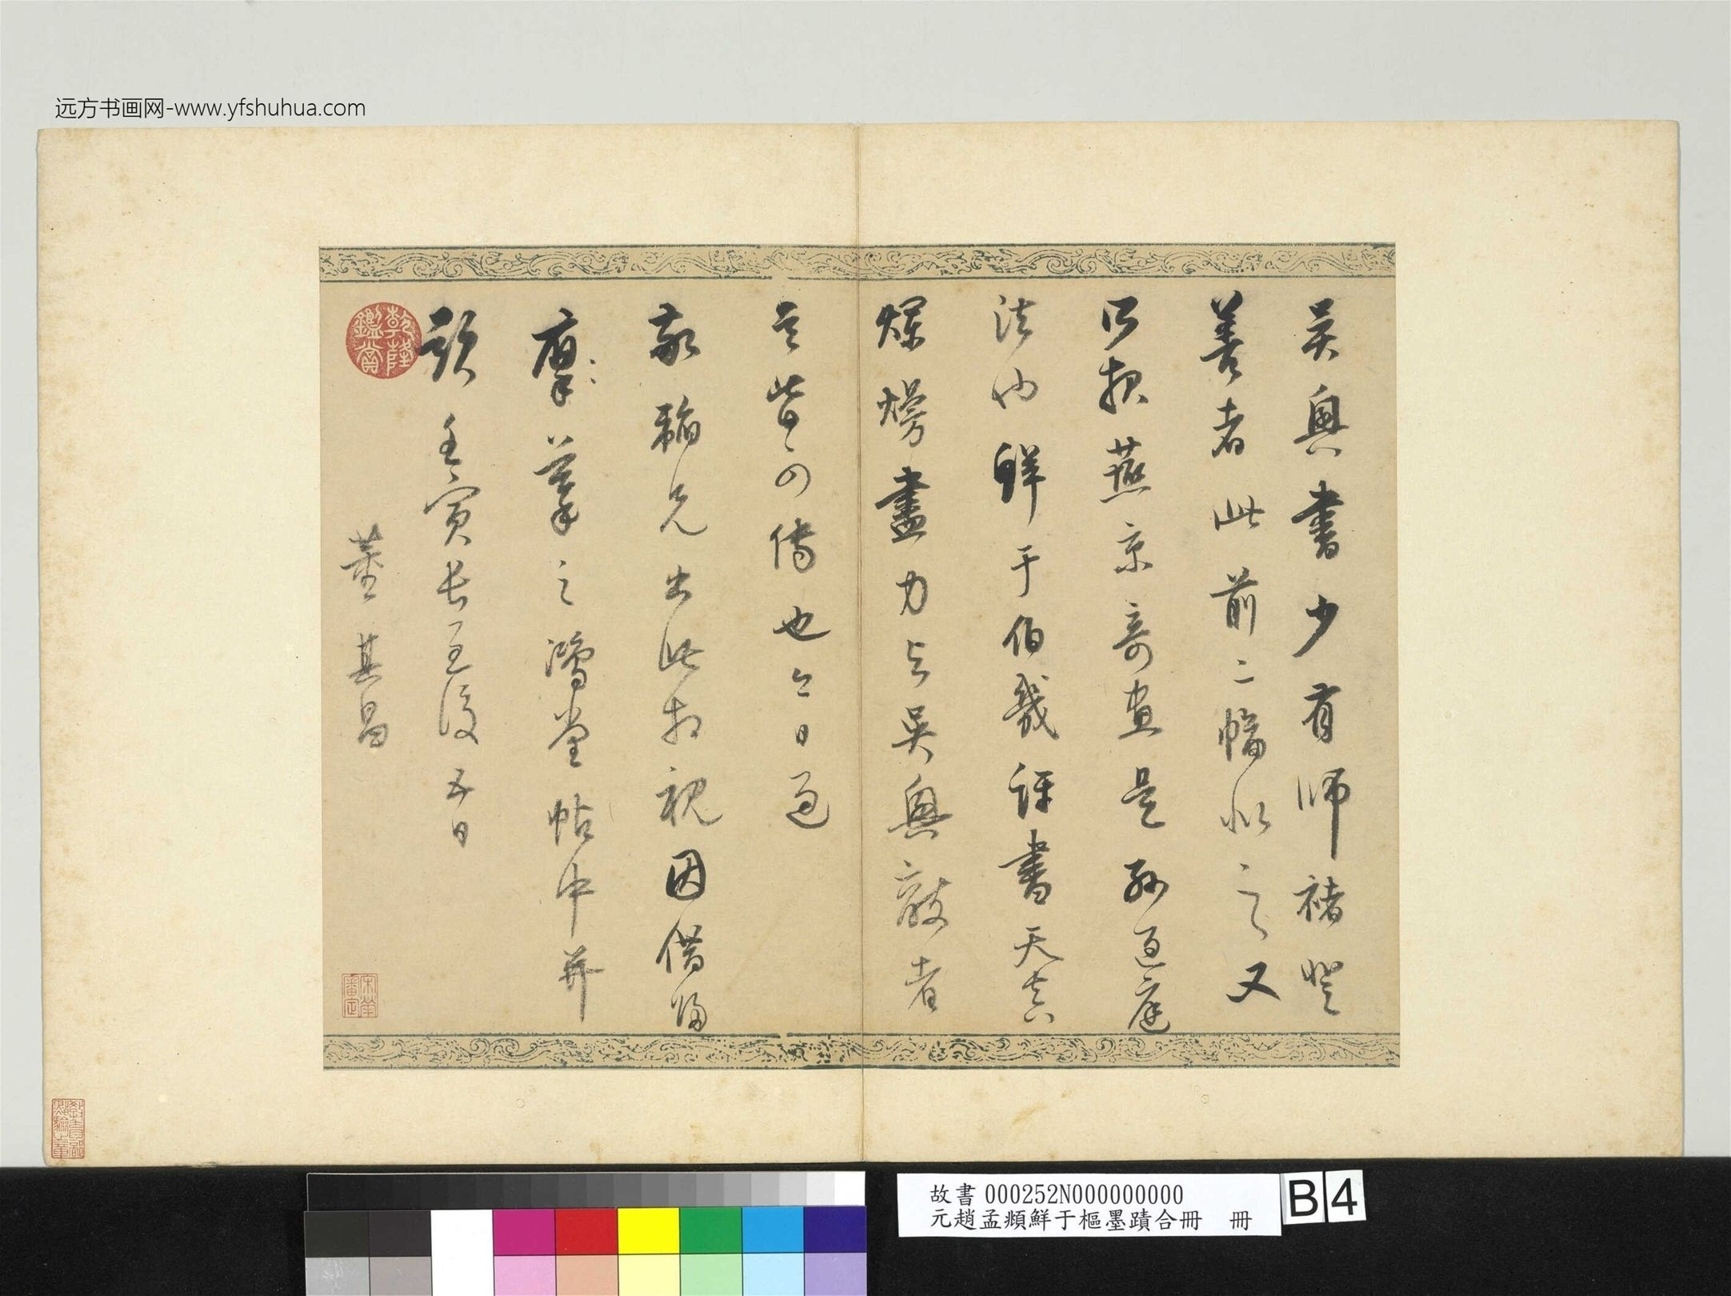 远方书画网-www.yfshuhua.com
吳興書少有師褚登
善者此前二幅似之又
跋燕京奇畫是孫過庭
法也鮮于伯幾評書天真
爛熳盡力與吳興敵者
皆可傳也今日過
敬韜兄出此相視因借歸
摩摹之鴻堂帖中并
題 壬寅長至後五日
董其昌
乾隆鑑賞
故書 000252N000000000
元趙孟頫鮮于樞墨蹟合冊 冊
B4